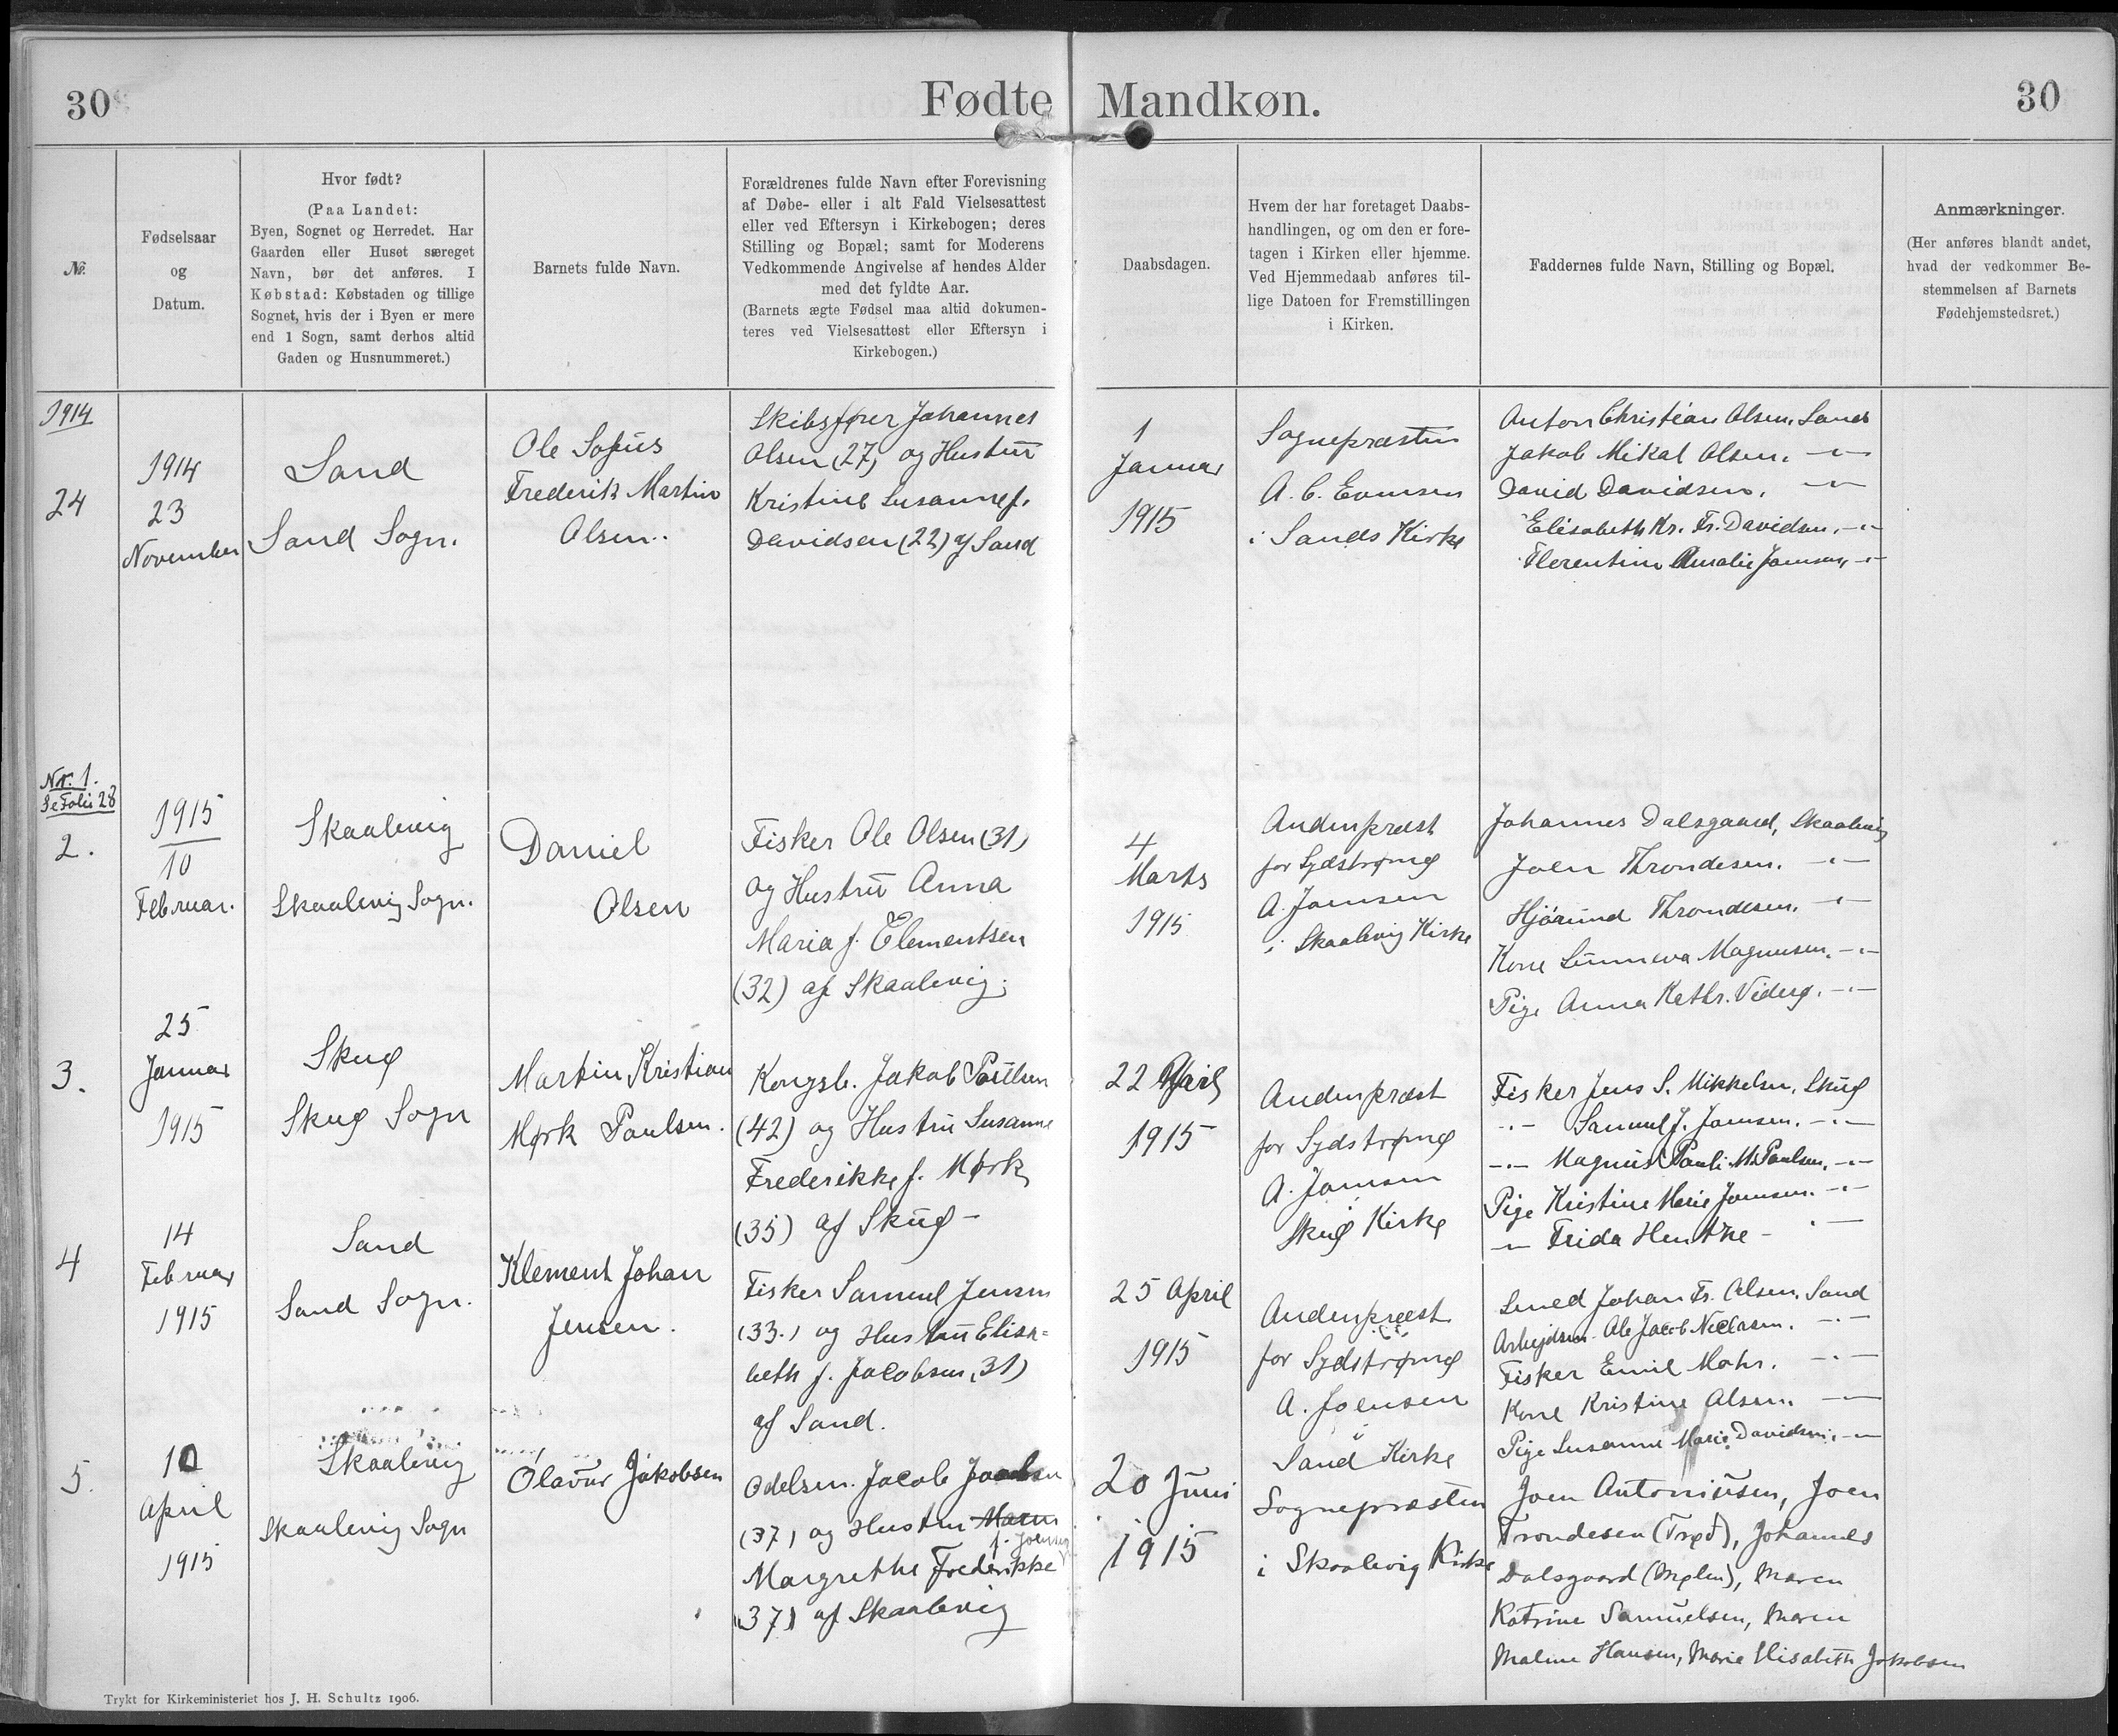 30
Fødte
Mandkøn.
30
№.
Fødselsaar
og
Datum.
Hvor født?
(Paa Landet:
Byen, Sognet og Herredet. Har
Gaarden eller Huset særeget
Navn, bør det anføres. I
Købstad: Købstaden og tillige
Sognet, hvis der i Byen er mere
end 1 Sogn, samt derhos altid
Gaden og Husnummeret.)
Barnets fulde Navn.
Forældrenes fulde Navn efter Forevisning
af Døbe- eller i alt Fald Vielsesattest
eller ved Eftersyn i Kirkebogen; deres
Stilling og Bopæl; samt for Moderens
Vedkommende Angivelse af hendes Alder
med det fyldte Aar.
(Barnets ægte Fødsel maa altid dokumen-
teres ved Vielsesattest eller Eftersyn i
Kirkebogen.)
Daabsdagen.
Hvem der har foretaget Daabs-
handlingen, og om den er fore-
tagen i Kirken eller hjemme.
Ved Hjemmedaab anføres til-
lige Datoen for Fremstillingen
i Kirken.
Faddernes fulde Navn, Stilling og Bopæl.
Anmærkninger.
(Her anføres blandt andet,
hvad der vedkommer Be-
stemmelsen af Barnets
Fødehjemstedsret.)
1914
24
1914
23
November
Sand
Sand Sogn.
Ole Sofus
Frederik Martin
Olsen.
Skibsfører Johannes
Olsen (27) og Hustru
Kristine Susanne f.
Davidsen (22) af Sand
1
Januar
1915
Sognepræsten
A. C. Evensen
i Sands Kirke
Anton Christian Olsen, Sand
Jakob Mikal Olsen. -"-
David Davidsen. -"-
Elisabeth Kr. Fr. Davidsen. -"-
Florentine Amalie Joensen, -"-
Nr. 1.
Se Folie 28
2.
1915
10
Februar.
Skaalevig
Skaalevig Sogn.
Daniel
Olsen
Fisker Ole Olsen (31)
og Hustru Anna
Maria f. Clementsen
(32) af Skaalevig.
4
Marts
1915
Andenpræst
for Sydstrømø
A. Joensen
i Skaalevig Kirke
Johannes Dalsgaard, Skaalevig
Joen Throndesen. -"-
Hjørund Throndesen. -"-
Kone Sunneva Magnusen. -"-
Pige Anna Kathr. Viderø. -"-
3.
25
Januar
1915
Skuø
Skuø Sogn
Martin Kristian
Mørk Poulsen.
Kongsb. Jakob Poulsen
(42) og Hustru Susanne
Frederikke f. Mørk
(35) af Skuø -
22 April
1915
Andenpræst
for Sydstrømø
A. Joensen
Skuø Kirke
Fisker Jens S. Mikkelsen, Skuø
-"- Samuel J. Joensen. -"-
-"- Magnus Pauli M. Poulsen. -"-
Pige Kristine Marie Joensen. -"-
-"- Frida Henthe - -"-
4
14
Februar
1915
Sand
Sand Sogn.
Klement Johan
Jensen.
Fisker Samuel Jensen
(33.) og Hustru Elisa=
beth f. Jacobsen (31)
af Sand.
25 April
1915
Andenpræst
for Sydstrømø
A. Joensen
Sand Kirke
Smed Johan Fr. Olsen. Sand
Arbejdsm. Ole Jacob Niclasen. -"-
Fisker Emil Mohr. -"-
Kone Kristine Olsen. -"-
Pige Susanne Marie Davidsen. -"-
5.
10
April
1915
Skaalevig
Skaalevig Sogn
Ólavur Jakobsen
Odelsm. Jacob Jacobsen
(37) og Hustru Maren
f. Joensen
Margrethe Frederikke
(37) af Skaalevig
20 Juni
1915
Sognepræsten
i Skaalevig Kirke
Joen Antoniusen, Joen
Trondesen (Trøð), Johannes
Dalsgaard (Mølin), Maren
Katrine Samuelsen, Maren
Maline Hansen, Marie Elisabeth Jakobsen
Trykt for Kirkeministeriet hos J. H. Schultz 1906.